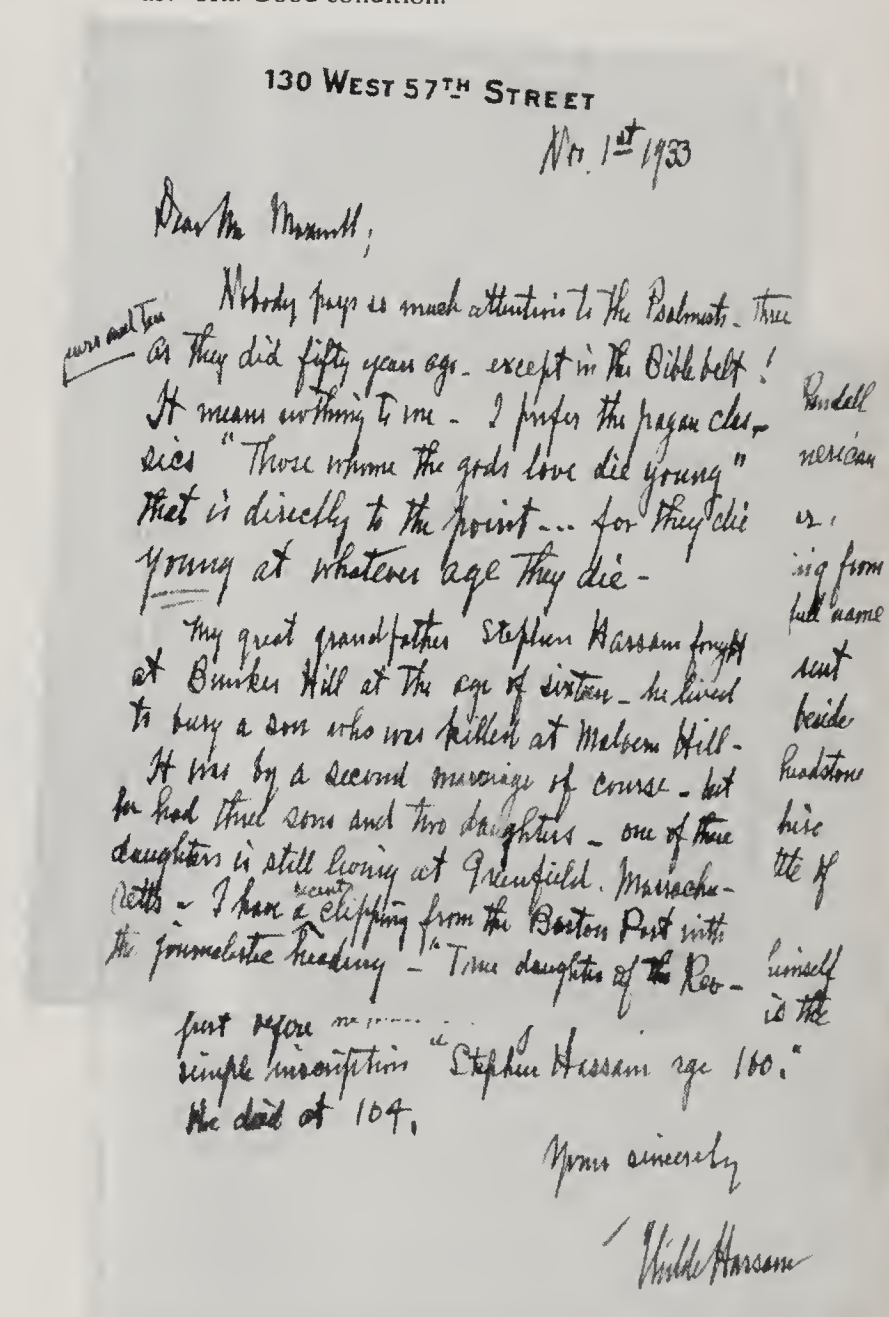 Good condition.
130 WEST 57TH STREET
Nov. 1st 1933
Dear Mr Maxwell,
Nobody pays as much attention to the Psalmists - three
years and ten
as they did fifty years ago - except in the Bible belt !
It means nothing to me - I prefer the pagan clas-
sics "Those whome the gods love die young"
that is directly to the point... for they die
young at whatever age they die -
My great grandfather Stephen Hassam fought
at Bunker Hill at the age of sixteen - he lived
to bury a son who was killed at Malvern Hill -
It was by a second marriage of course - but
he had three sons and two daughters - one of these
daughters is still living at Greenfield. Massachu-
setts - I have a recent clipping from the Boston Post with
the journalistic heading - "True daughter of the Rev-
just before
simple inscription "Stephen Hassam age 100."
He died at 104.
Yours sincerely
Childe Hassam
Randall
nerican
er.
ing from
full name
sent
beside
headstone
hire
tle of
himself
is the